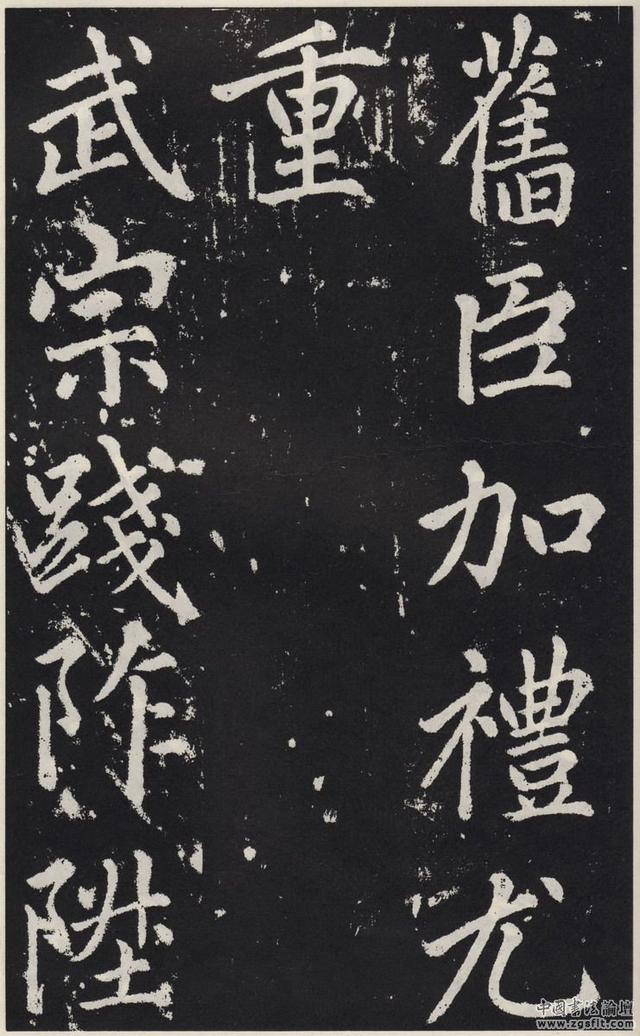 舊臣加禮尤
重
武宗踐阼陞
中国書法論壇
www.zgsflt.com